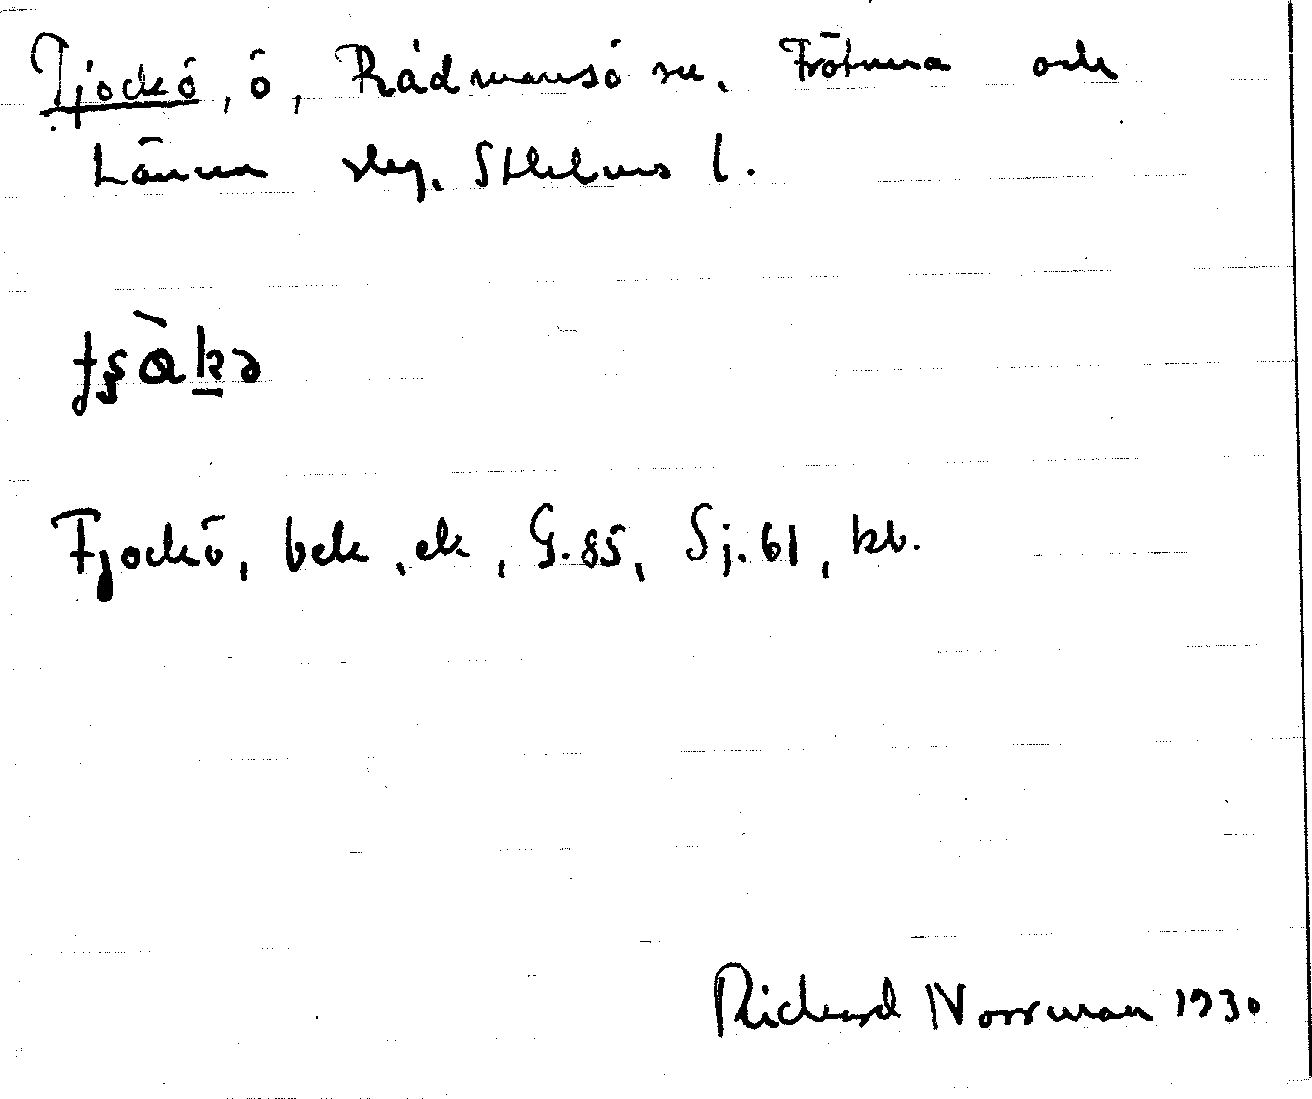 Tjockö, ö, Rådmansö sn. Frötuna och
Länna slg. Sthlms l.
tʂàkə
Tjockö, bek, ek, G.85, Sj.61, kb.
Rickard Norrman 1930